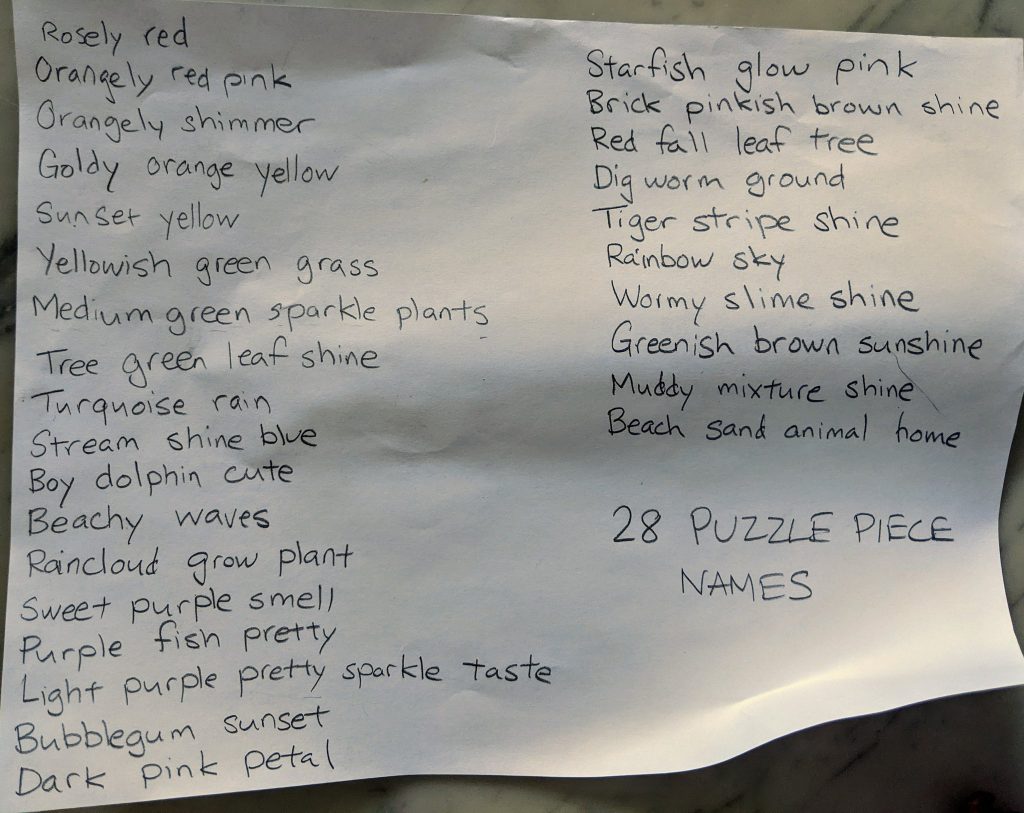 Rosely red
Orangely red pink
Orangely shimmer
Goldy orange yellow
Sunset yellow
Yellowish green grass
Medium green sparkle plants
Tree green leaf shine
Turquoise rain
Stream shine blue
Boy dolphin cute
Beachy waves
Raincloud grow plant
Sweet purple smell
Purple fish pretty
Light purple pretty sparkle taste
Bubblegum sunset
Dark pink petal
Starfish glow pink
Brick pinkish brown shine
Red fall leaf tree
Dig worm ground
Tiger stripe shine
Rainbow sky
Wormy slime shine
Greenish brown sunshine
Muddy mixture shine
Beach sand animal home
28 PUZZLE PIECE
NAMES